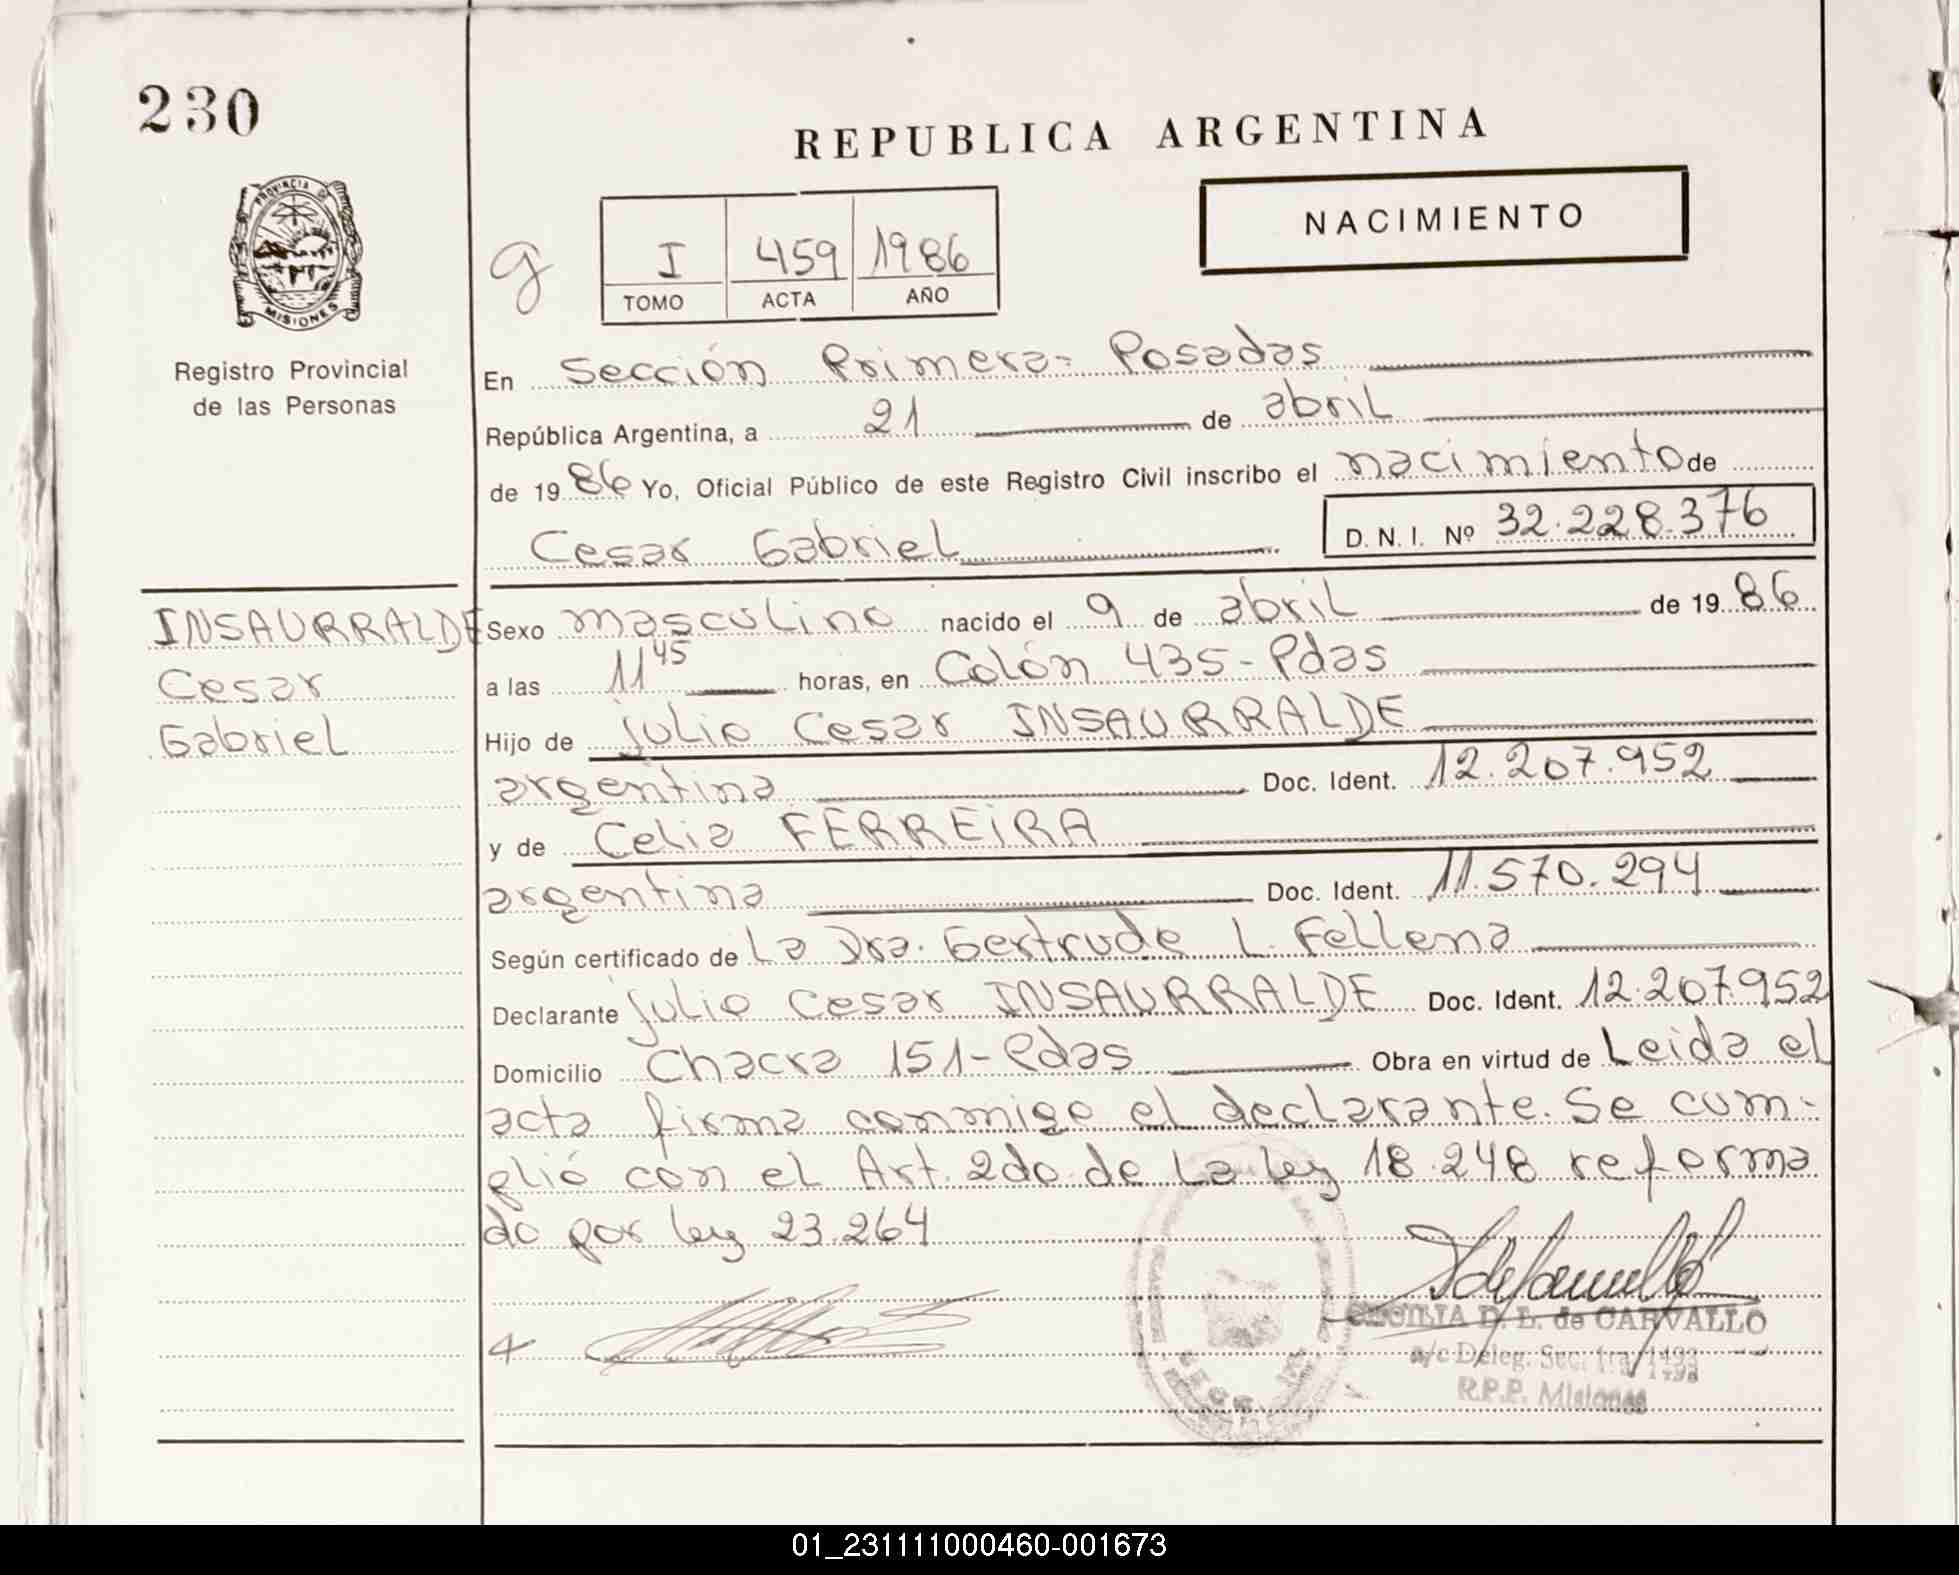 230
REPUBLICA ARGENTINA
NACIMIENTO
g
I 459 1986
TOMO ACTA AÑO
PROVINCIA DE
MISIONES
Registro Provincial
de las Personas
En Sección Primera- Posadas
República Argentina, a 21 de abril
de 1986 Yo, Oficial Público de este Registro Civil inscribo el nacimiento de
Cesar Gabriel D. N. I. Nº 32.228.376
INSAURRALDE
Cesar
Gabriel
Sexo masculino nacido el 9 de abril de 1986
a las 11 45 horas, en Colón 435-Pdas
Hijo de julio Cesar INSAURRALDE
argentina Doc. Ident. 12.207.952
y de Celia FERREIRA
argentina Doc. Ident. 11.570.294
Según certificado de La Dra. Gertrude L. Fellena
Declarante julio Cesar INSAURRALDE Doc. Ident. 12.207.952
Domicilio Chacra 151-Pdas Obra en virtud de Leida el
acta firma conmigo el declarante. Se cum-
plió con el Art. 2do de la ley 18.248 reforma
do por ley 23.264
CECILIA D. L. de CARVALLO
a/c Deleg. Sec. 1ra/
R.P.P. Misiones
01_231111000460-001673